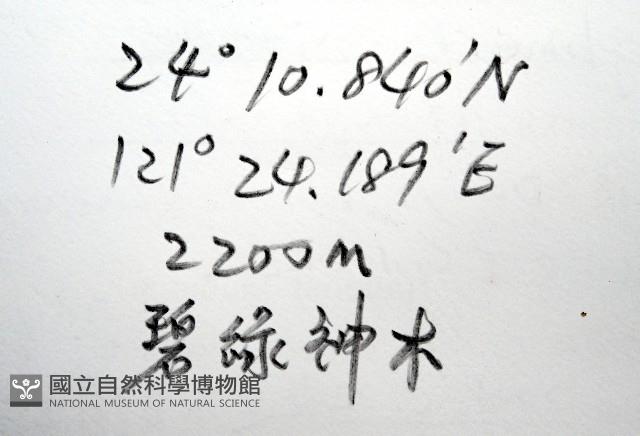 24° 10.840'N
121° 24.189'E
2200m
碧綠神木
國立自然科學博物館
NATIONAL MUSEUM OF NATURAL SCIENCE